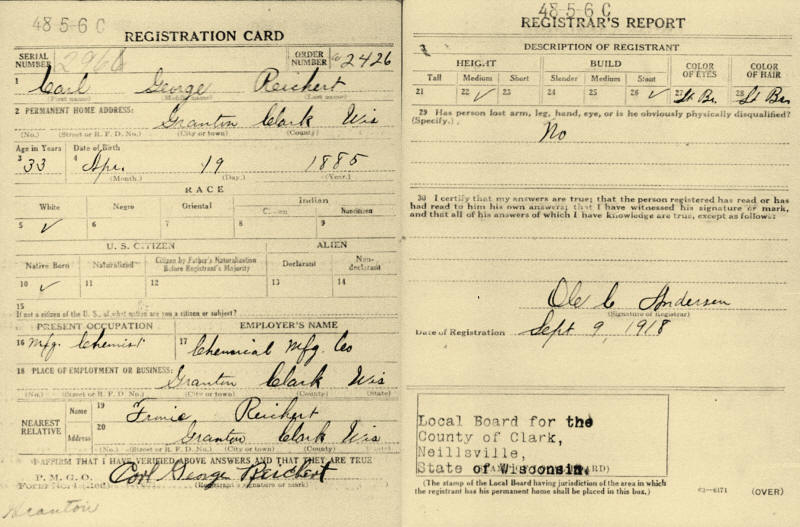 48-5-6 C
REGISTRATION CARD
SERIAL NUMBER 2966 ORDER NUMBER 2426
1 Carl George Reichert
(First name) (Middle name) (Last name)
2 PERMANENT HOME ADDRESS:
Granton Clark Wis
(No.) (Street or R. F. D. No.) (City or town) (County) (State)
Age in Years Date of Birth
3 33 4 Apr. 19 1885
(Month.) (Day.) (Year.)
RACE
White Negro Oriental Indian
Citizen Noncitizen
5 ✓ 6 7 8 9
U. S. CITIZEN ALIEN
Native Born Naturalized Citizen by Father's Naturalization Before Registrant's Majority Declarant Non-declarant
10 ✓ 11 12 13 14
15
If not a citizen of the U. S., of what nation are you a citizen or subject?
PRESENT OCCUPATION EMPLOYER'S NAME
16 Mfg. Chemist 17 Chemical Mfg. Co
18 PLACE OF EMPLOYMENT OR BUSINESS:
Granton Clark Wis
(No.) (Street or R. F. D. No.) (City or town) (County) (State)
NEAREST RELATIVE Name 19 Reichert
Address 20 Granton Clark Wis
(No.) (Street or R. F. D. No.) (City or town) (County) (State)
I AFFIRM THAT I HAVE VERIFIED ABOVE ANSWERS AND THAT THEY ARE TRUE
P. M. G. O.
Form No. 1 (Red) Carl George Reichert
(Registrant's signature or mark)
Granton
48-5-6 C
REGISTRAR'S REPORT
DESCRIPTION OF REGISTRANT
HEIGHT BUILD COLOR OF EYES COLOR OF HAIR
Tall Medium Short Slender Medium Stout
21 22 ✓ 23 24 25 26 ✓ 27 Lt Br. 28 Lt Br
29 Has person lost arm, leg, hand, eye, or is he obviously physically disqualified?
(Specify.)
No
30 I certify that my answers are true; that the person registered has read or has
had read to him his own answers; that I have witnessed his signature or mark,
and that all of his answers of which I have knowledge are true, except as follows:
Ole C Andersen
(Signature of Registrar)
Date of Registration Sept 9, 1918
Local Board for the
County of Clark,
Neillsville,
State of Wisconsin.
(The stamp of the Local Board having jurisdiction of the area in which
the registrant has his permanent home shall be placed in this box.)
03—6171 (OVER)